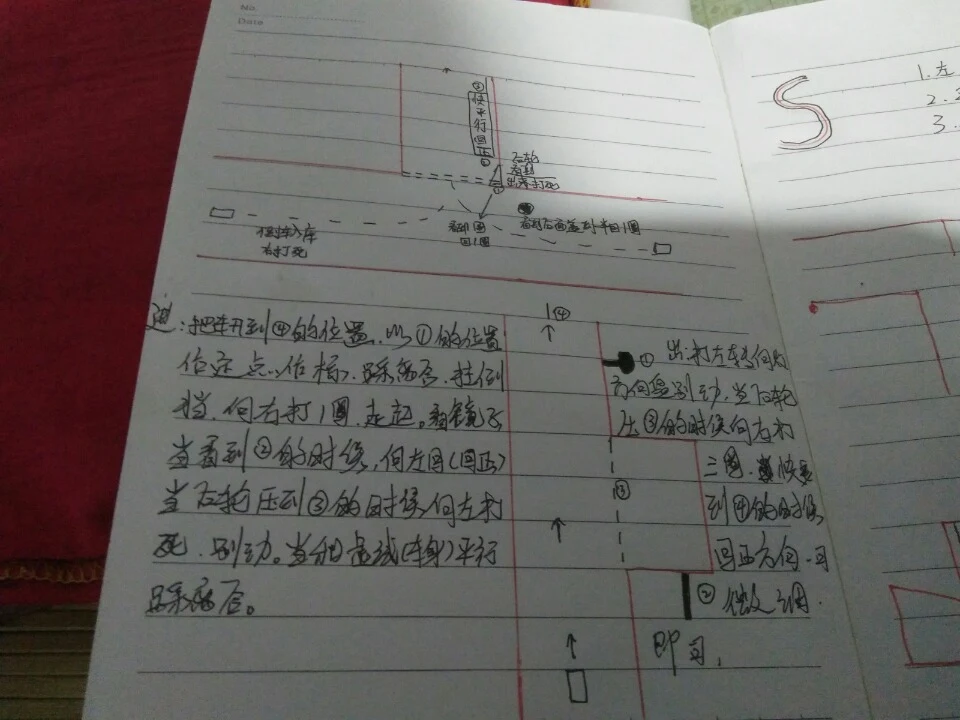 No.
Date
②
快平行回正
②
右轮
出库打死
①
倒车入库
右打死
回1圈
④
进:把车开到④的位置,以①的位置
作定点,作标,踩离合,挂倒
挡,向右打1圈,走起。看镜子
当看到②的时候,向左回(回正)
当右轮压到③的时候向左打
死,别动。当和虚线(车身)平行
踩离合。
①
出:打左转向灯
方向盘别动,当右轮
压③的时候向右打
三圈,快要
③
到④的时候
回正方向,可
②
做文调.
即可,
S
1.左
2.
3.